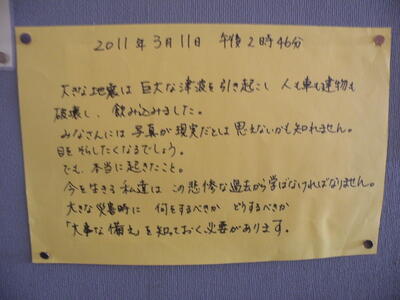 2011年3月11日 午後2時46分
大きな地震は 巨大な津波を引き起こし 人も車も建物も
破壊し、飲み込みました。
みなさんには 写真が現実だとは 思えないかも知れません。
目をそらしたくなるでしょう。
でも、本当に起きたこと。
今を生きる私達は この悲惨な過去から学ばなければなりません。
大きな災害時に 何をするべきか どうするべきか
「大事な備え」を知っておく必要があります。